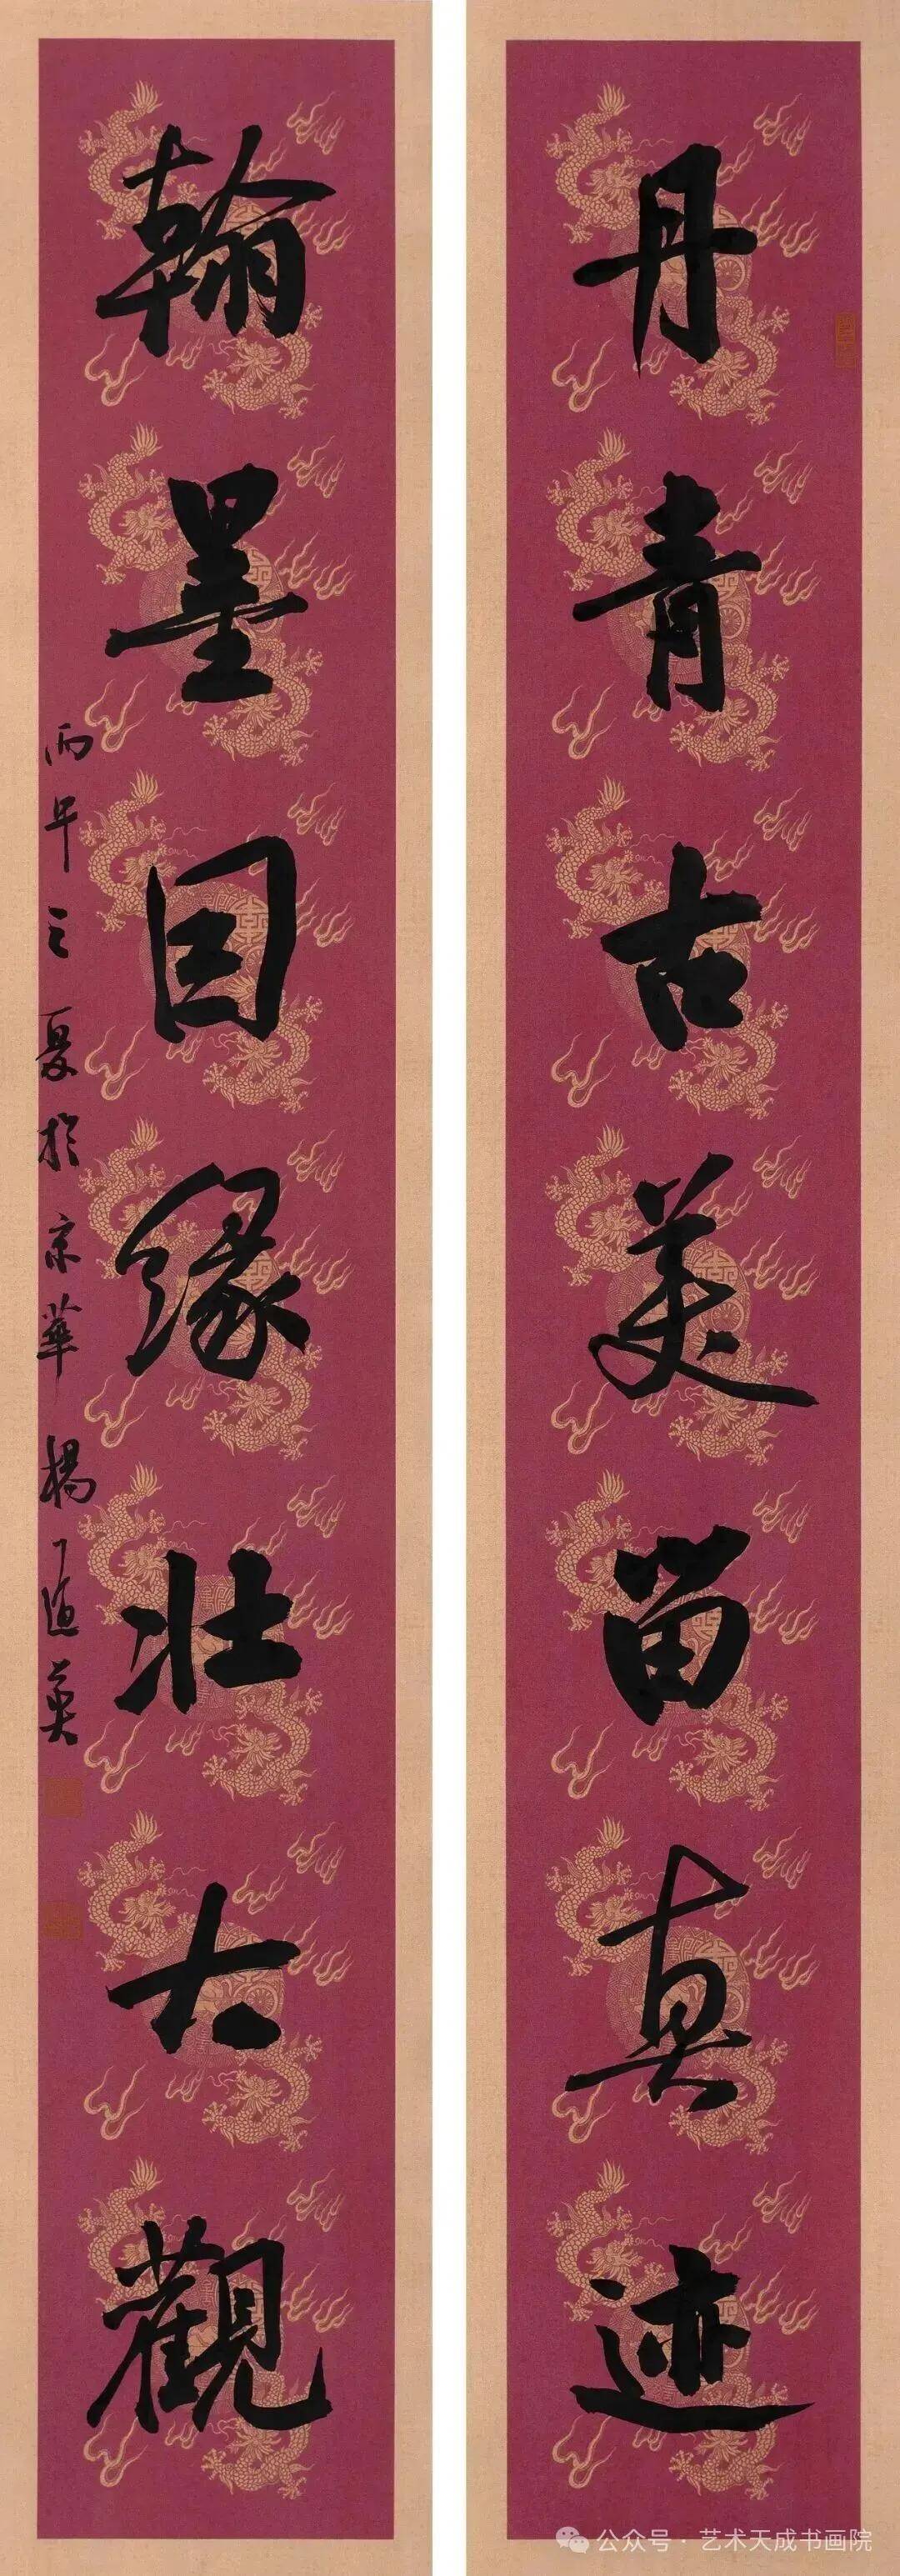 丹青古美留真迹
翰墨因缘壮大觀
丙午之夏於京華 楊道英
公众号·艺术天成书画院